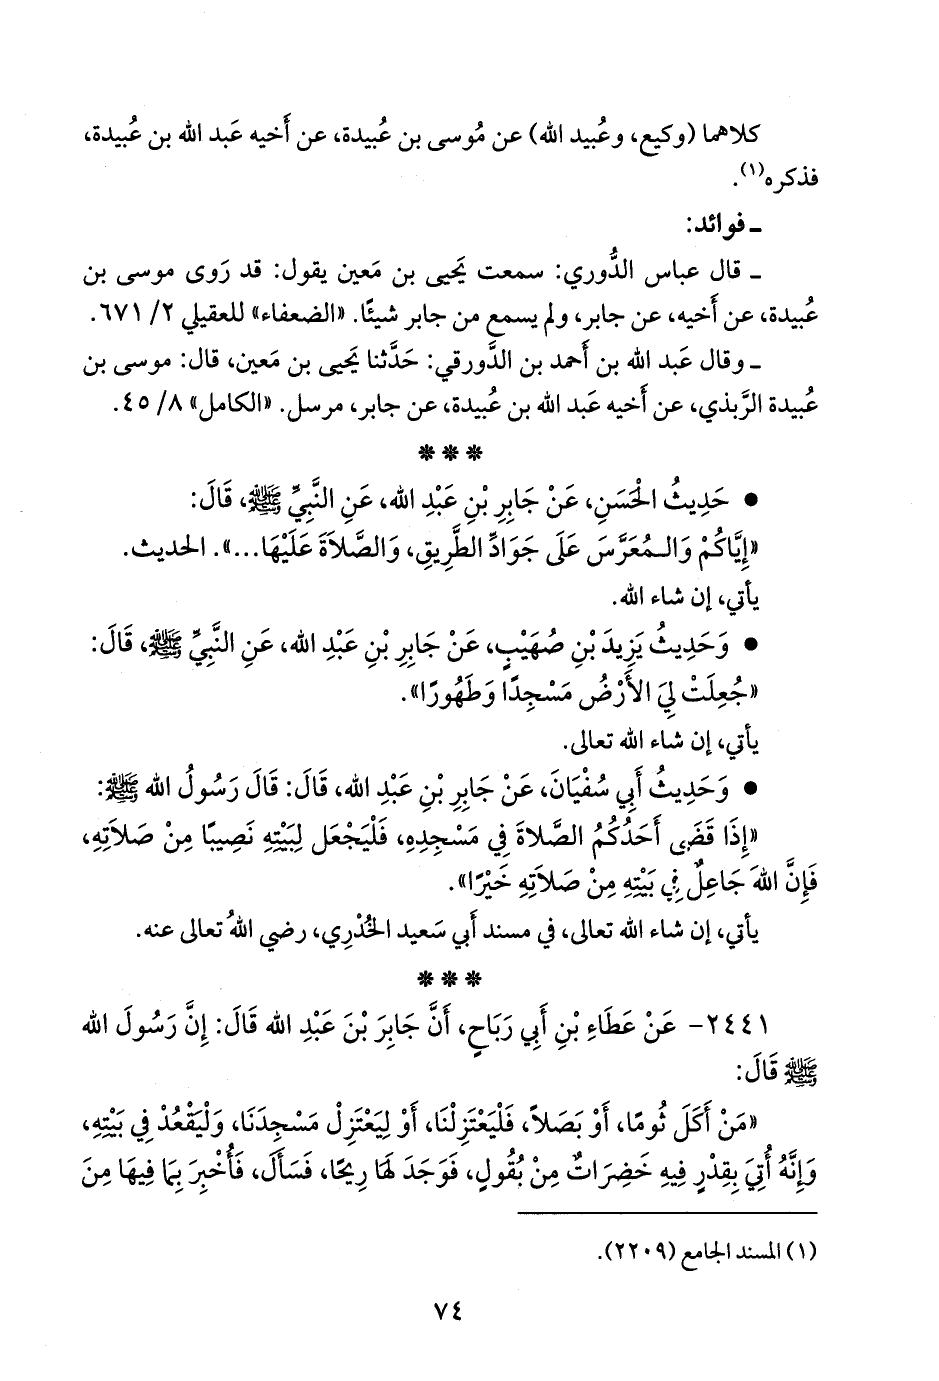 كلاهما (وكيع، وعُبيد الله) عن مُوسى بن عُبيدة، عن أَخيه عَبد الله بن عُبيدة،
فذكره(١).
ـ فوائد:
ـ قال عباس الدُّوري: سمعت يَحيى بن مَعين يقول: قد رَوى موسى بن
عُبيدة، عن أَخيه، عن جابر، ولم يسمع من جابر شيئًا. «الضعفاء» للعقيلي ٢/ ٦٧١.
ـ وقال عَبد الله بن أَحمد بن الدَّورقي: حَدَّثنا يَحيى بن مَعين، قال: موسى بن
عُبيدة الرَّبذي، عن أَخيه عَبد الله بن عُبيدة، عن جابر، مرسل. «الكامل» ٨/ ٤٥.
***
• حَدِيثُ الْحَسَنِ، عَنْ جَابِرِ بْنِ عَبْدِ الله، عَنِ النَّبِيِّ ﷺ، قَالَ:
«إِيَّاكُمْ وَالـمُعَرَّسَ عَلَى جَوَادِّ الطَّرِيقِ، وَالصَّلاَةَ عَلَيْهَا...». الحديث.
يأتي، إن شاء الله.
• وَحَدِيثُ يَزِيدَ بْنِ صُهَيْبٍ، عَنْ جَابِرِ بْنِ عَبْدِ الله، عَنِ النَّبِيِّ ﷺ، قَالَ:
«جُعِلَتْ لِيَ الأَرْضُ مَسْجِدًا وَطَهُورًا».
يأتي، إن شاء الله تعالى.
• وَحَدِيثُ أَبِي سُفْيَانَ، عَنْ جَابِرِ بْنِ عَبْدِ الله، قَالَ: قَالَ رَسُولُ الله ﷺ:
«إِذَا قَضَى أَحَدُكُمُ الصَّلاةَ فِي مَسْجِدِهِ، فَلْيَجْعَل لِبَيْتِهِ نَصِيبًا مِنْ صَلاَتِهِ،
فَإِنَّ اللهَ جَاعِلٌ فِي بَيْتِهِ مِنْ صَلاَتِهِ خَيْرًا».
يأتي، إن شاء الله تعالى، في مسند أَبي سَعيد الخُدْرِي، رضي اللهُ تعالى عنه.
***
٢٤٤١- عَنْ عَطَاءِ بْنِ أَبِي رَبَاحٍ، أَنَّ جَابِرَ بْنَ عَبْدِ الله قَالَ: إِنَّ رَسُولَ الله
ﷺ قَالَ:
«مَنْ أَكَلَ ثُومًا، أَوْ بَصَلاً، فَلْيَعْتَزِلْنَا، أَوْ لِيَعْتَزِلْ مَسْجِدَنَا، وَلْيَقْعُدْ فِي بَيْتِهِ،
وَإِنَّهُ أُتِيَ بِقِدْرٍ فِيهِ خَضِرَاتٌ مِنْ بُقُولٍ، فَوَجَدَ لَهَا رِيحًا، فَسَأَلَ، فَأُخْبِرَ بِمَا فِيهَا مِنَ
(١) المسند الجامع (٢٢٠٩).
٧٤